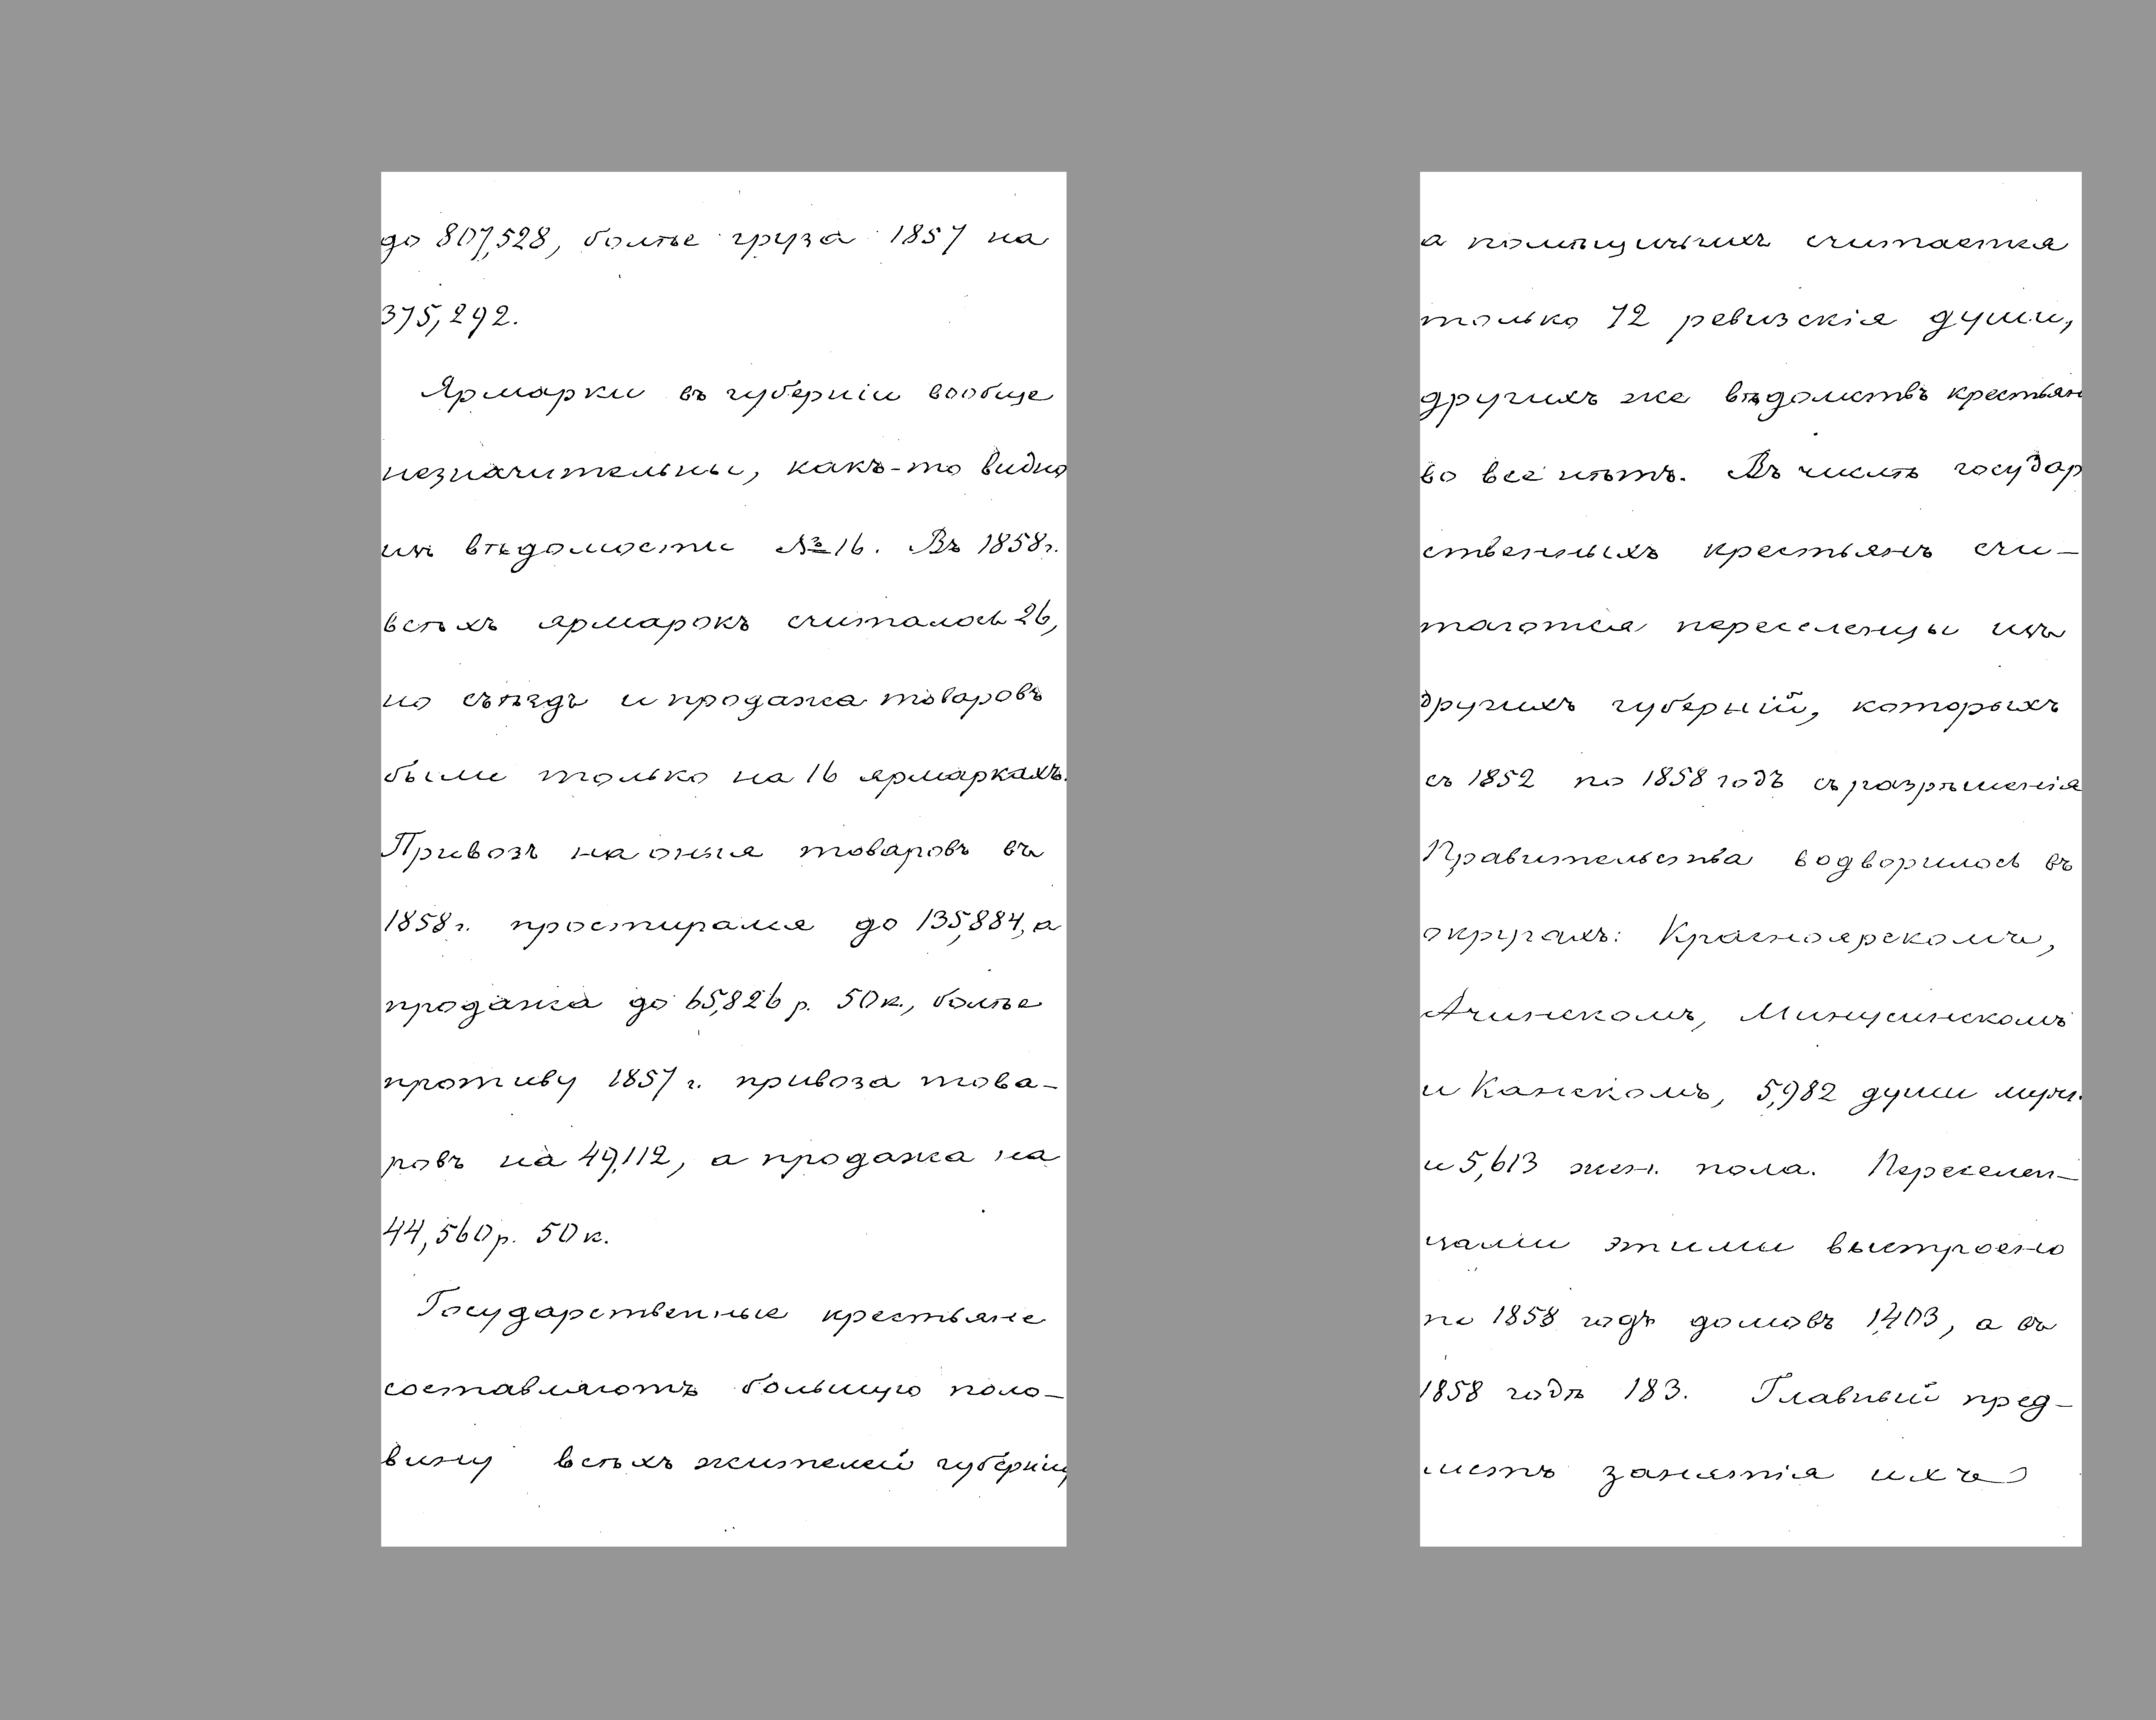 до 807,528, болѣе груза 1857 на
375,292.
Ярмарки въ губерніи вообще
незначительны, какъ-то видно
изъ вѣдомости № 16. Въ 1858 г.
всѣхъ ярмарокъ считалось 26,
но съѣздъ и продажа товаровъ
были только на 16 ярмаркахъ.
Привозъ на оныя товаровъ въ
1858 г. простирался до 135,884, а
продажа до 65,826 р. 50 к., болѣе
противу 1857 г. привоза това-
ровъ на 49,112, а продажа на
44,560 р. 50 к.
Государственные крестьяне
составляютъ большую поло-
вину всѣхъ жителей губерніи,
а помѣщичьихъ считается
только 72 ревизскія души,
другихъ же вѣдомствъ крестьян
во все нѣтъ. Въ числѣ государ
ственныхъ крестьянъ счи-
таются переселенцы изъ
другихъ губерній, которыхъ
съ 1852 по 1858 годъ съ разрѣшенія
Правительства водворилось въ
округахъ: Красноярскомъ,
Ачинскомъ, Минусинскомъ
и Канскомъ, 5,982 души муж.
и 5,613 жен. пола. Переселен-
цами этими выстроено
по 1858 годъ домовъ 1,403, а въ
1858 годѣ 183. Главный пред-
метъ занятія ихъ